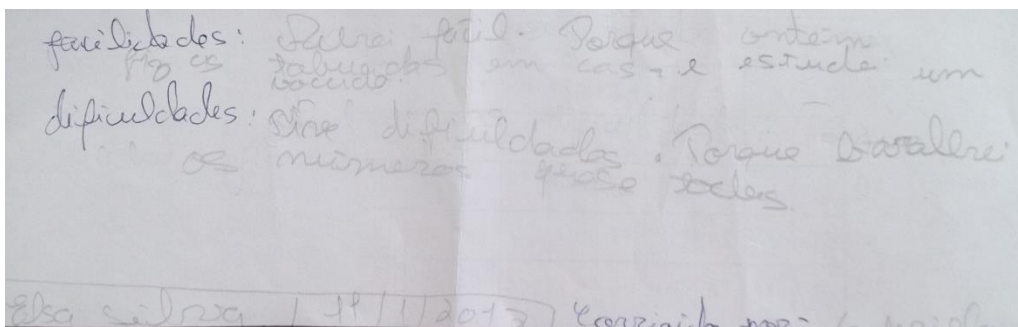 facilidades: Achei fácil. Porque ontem
fiz as tabuadas em cas, e estudei um
bocado.
dificuldades: Sine dificuldades. Porque baralhei
os números quase todos
Elsa Silva 11/1/201
Corrigido por: